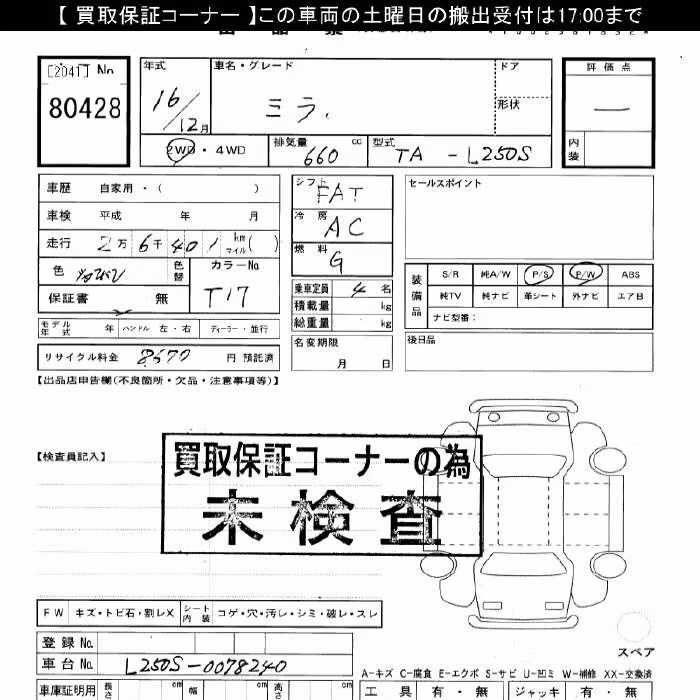 【 買取保証コーナー 】この車両の土曜日の搬出受付は17:00まで
[2041] No
80428
年式
16/12月
車名・グレード
ミラ.
ドア
形状
評価点
—
内装
2WD・4WD
排気量 660 cc
型式 TA - L250S
車歴 自家用・( )
車検 平成 年 月
走行 2万6千401 km マイル( )
色
色替
カラーNo
T17
保証書 無
モデル年式 年 ハンドル 左・右 ディーラー・並行
リサイクル料金 8670 円 預託済
シフト FAT
冷房 AC
燃料 G
乗車定員 4 名
積載量 kg
総重量 kg
名変期限
月 日
セールスポイント
装備品
S/R 純A/W P/S P/W ABS
純TV 純ナビ 革シート 外ナビ エアB
ナビ型番:
後日品
【出品店申告欄(不良箇所・欠品・注意事項等)】
【検査員記入】
買取保証コーナーの為
未検査
FW キズ・トビ石・割レX シート内装 コゲ・穴・汚レ・シミ・破レ・スレ
登録No.
車台No. L250S-0078240
スペア
A-キズ C-腐食 E-エクボ S-サビ U-凹ミ W-補修 XX-交換済
車庫証明用 長さ cm 幅 cm 高さ cm
工具 有・無 ジャッキ 有・無